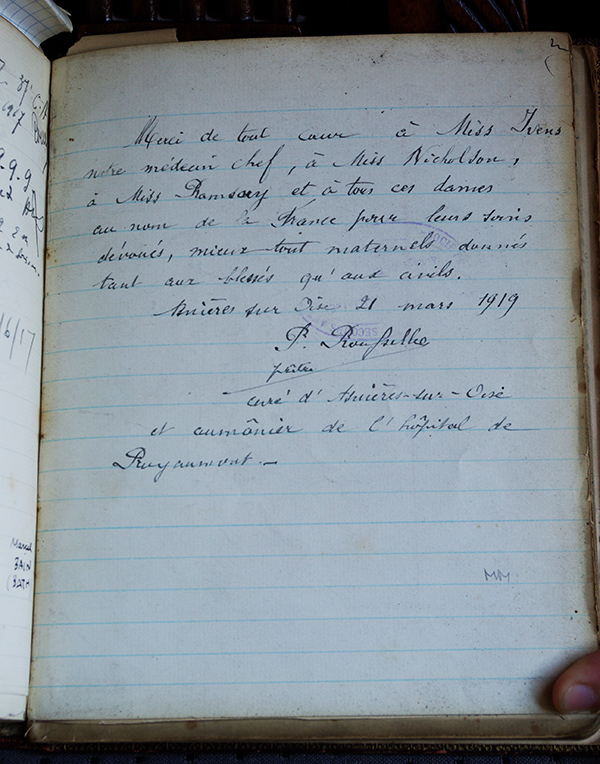 Merci de tout cœur à Miss Ivens
notre médecin chef, à Miss Nicholson,
à Miss Ramsay et à tous ces dames
au nom de la France pour leurs soins
dévoués, mieux tout maternels donnés
tant aux blessés qu'aux civils.
Asnières sur Oise 21 mars 1919
P. Rousselle
prêtre
curé d'Asnières-sur-Oise
et aumônier de l'hôpital de
Royaumont.—
MM
6/17
BAIN
BATH